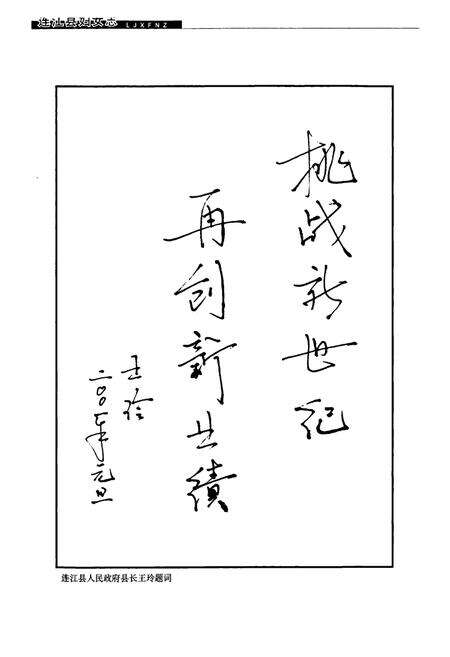 连江县妇女志
LJXFNZ
挑战新世纪
再创新业绩
王玲
二〇〇一年元旦
连江县人民政府县长王玲题词